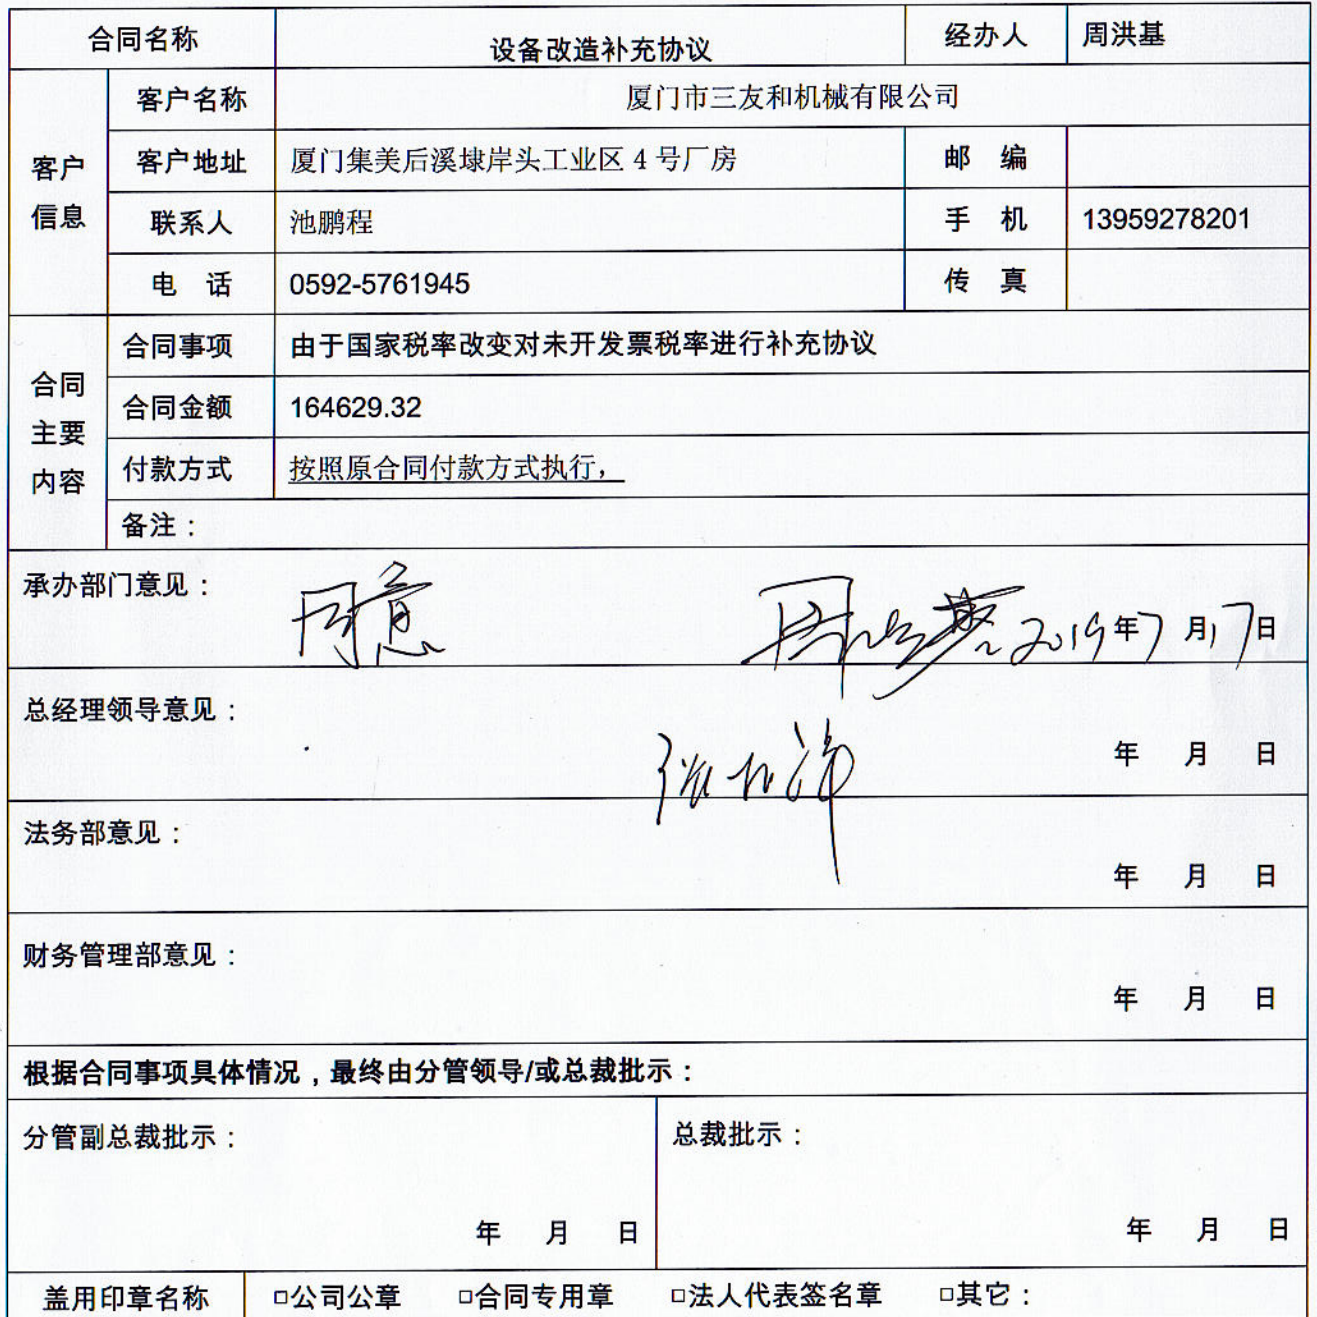 合同名称 设备改造补充协议 经办人 周洪基
客户信息 客户名称 厦门市三友和机械有限公司
客户地址 厦门集美后溪埭岸头工业区 4 号厂房 邮 编
联系人 池鹏程 手 机 13959278201
电 话 0592-5761945 传 真
合同主要内容 合同事项 由于国家税率改变对未开发票税率进行补充协议
合同金额 164629.32
付款方式 按照原合同付款方式执行，
备注：
承办部门意见： 同意 周洪基 2019年7月17日
总经理领导意见：
年 月 日
法务部意见：
年 月 日
财务管理部意见：
年 月 日
根据合同事项具体情况，最终由分管领导/或总裁批示：
分管副总裁批示： 总裁批示：
年 月 日 年 月 日
盖用印章名称 □公司公章 □合同专用章 □法人代表签名章 □其它：